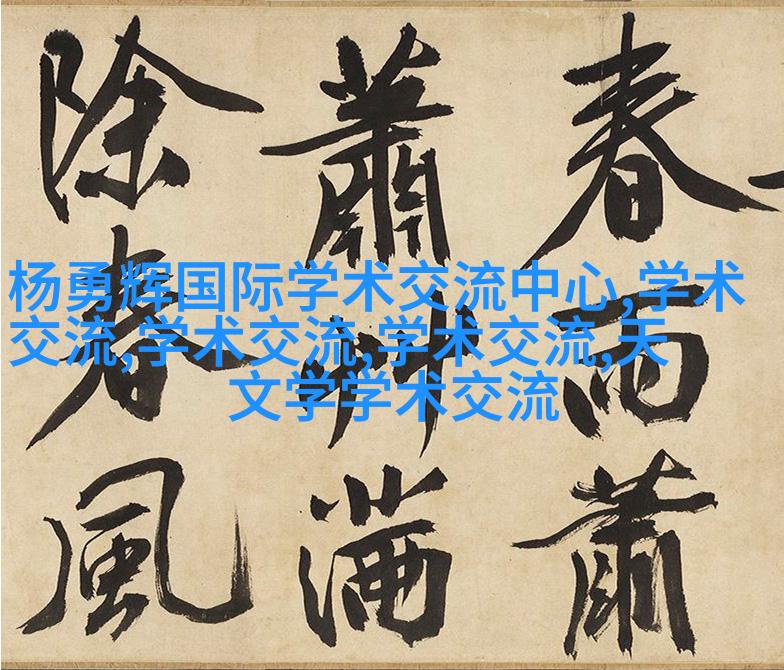 春雨蕭
蕭艸滿
除春風
杨勇辉国际学术交流中心,学术
交流,学术交流,学术交流,天
文学学术交流